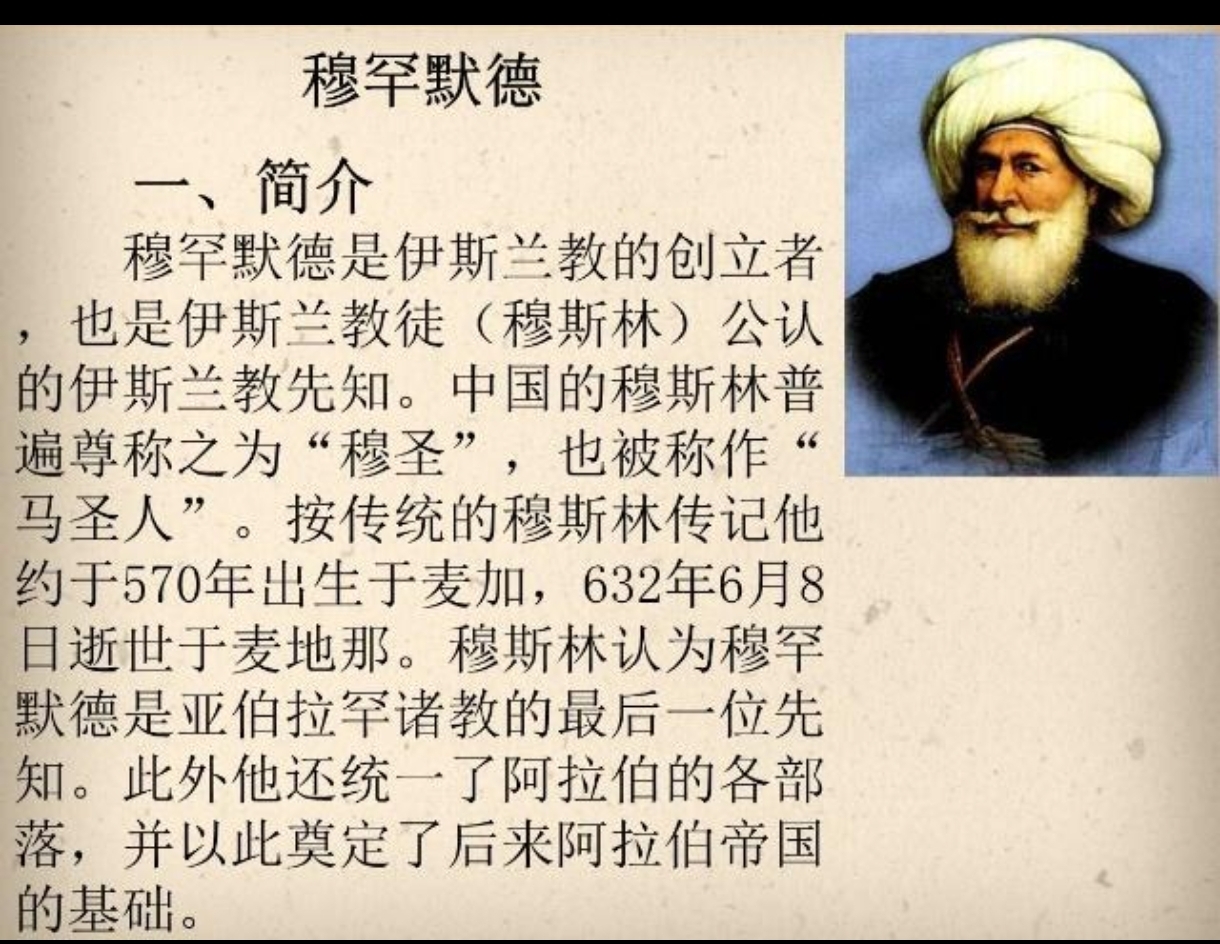 穆罕默德
一、简介
穆罕默德是伊斯兰教的创立者
，也是伊斯兰教徒（穆斯林）公认
的伊斯兰教先知。中国的穆斯林普
遍尊称之为“穆圣”，也被称作“
马圣人”。按传统的穆斯林传记他
约于570年出生于麦加，632年6月8
日逝世于麦地那。穆斯林认为穆罕
默德是亚伯拉罕诸教的最后一位先
知。此外他还统一了阿拉伯的各部
落，并以此奠定了后来阿拉伯帝国
的基础。